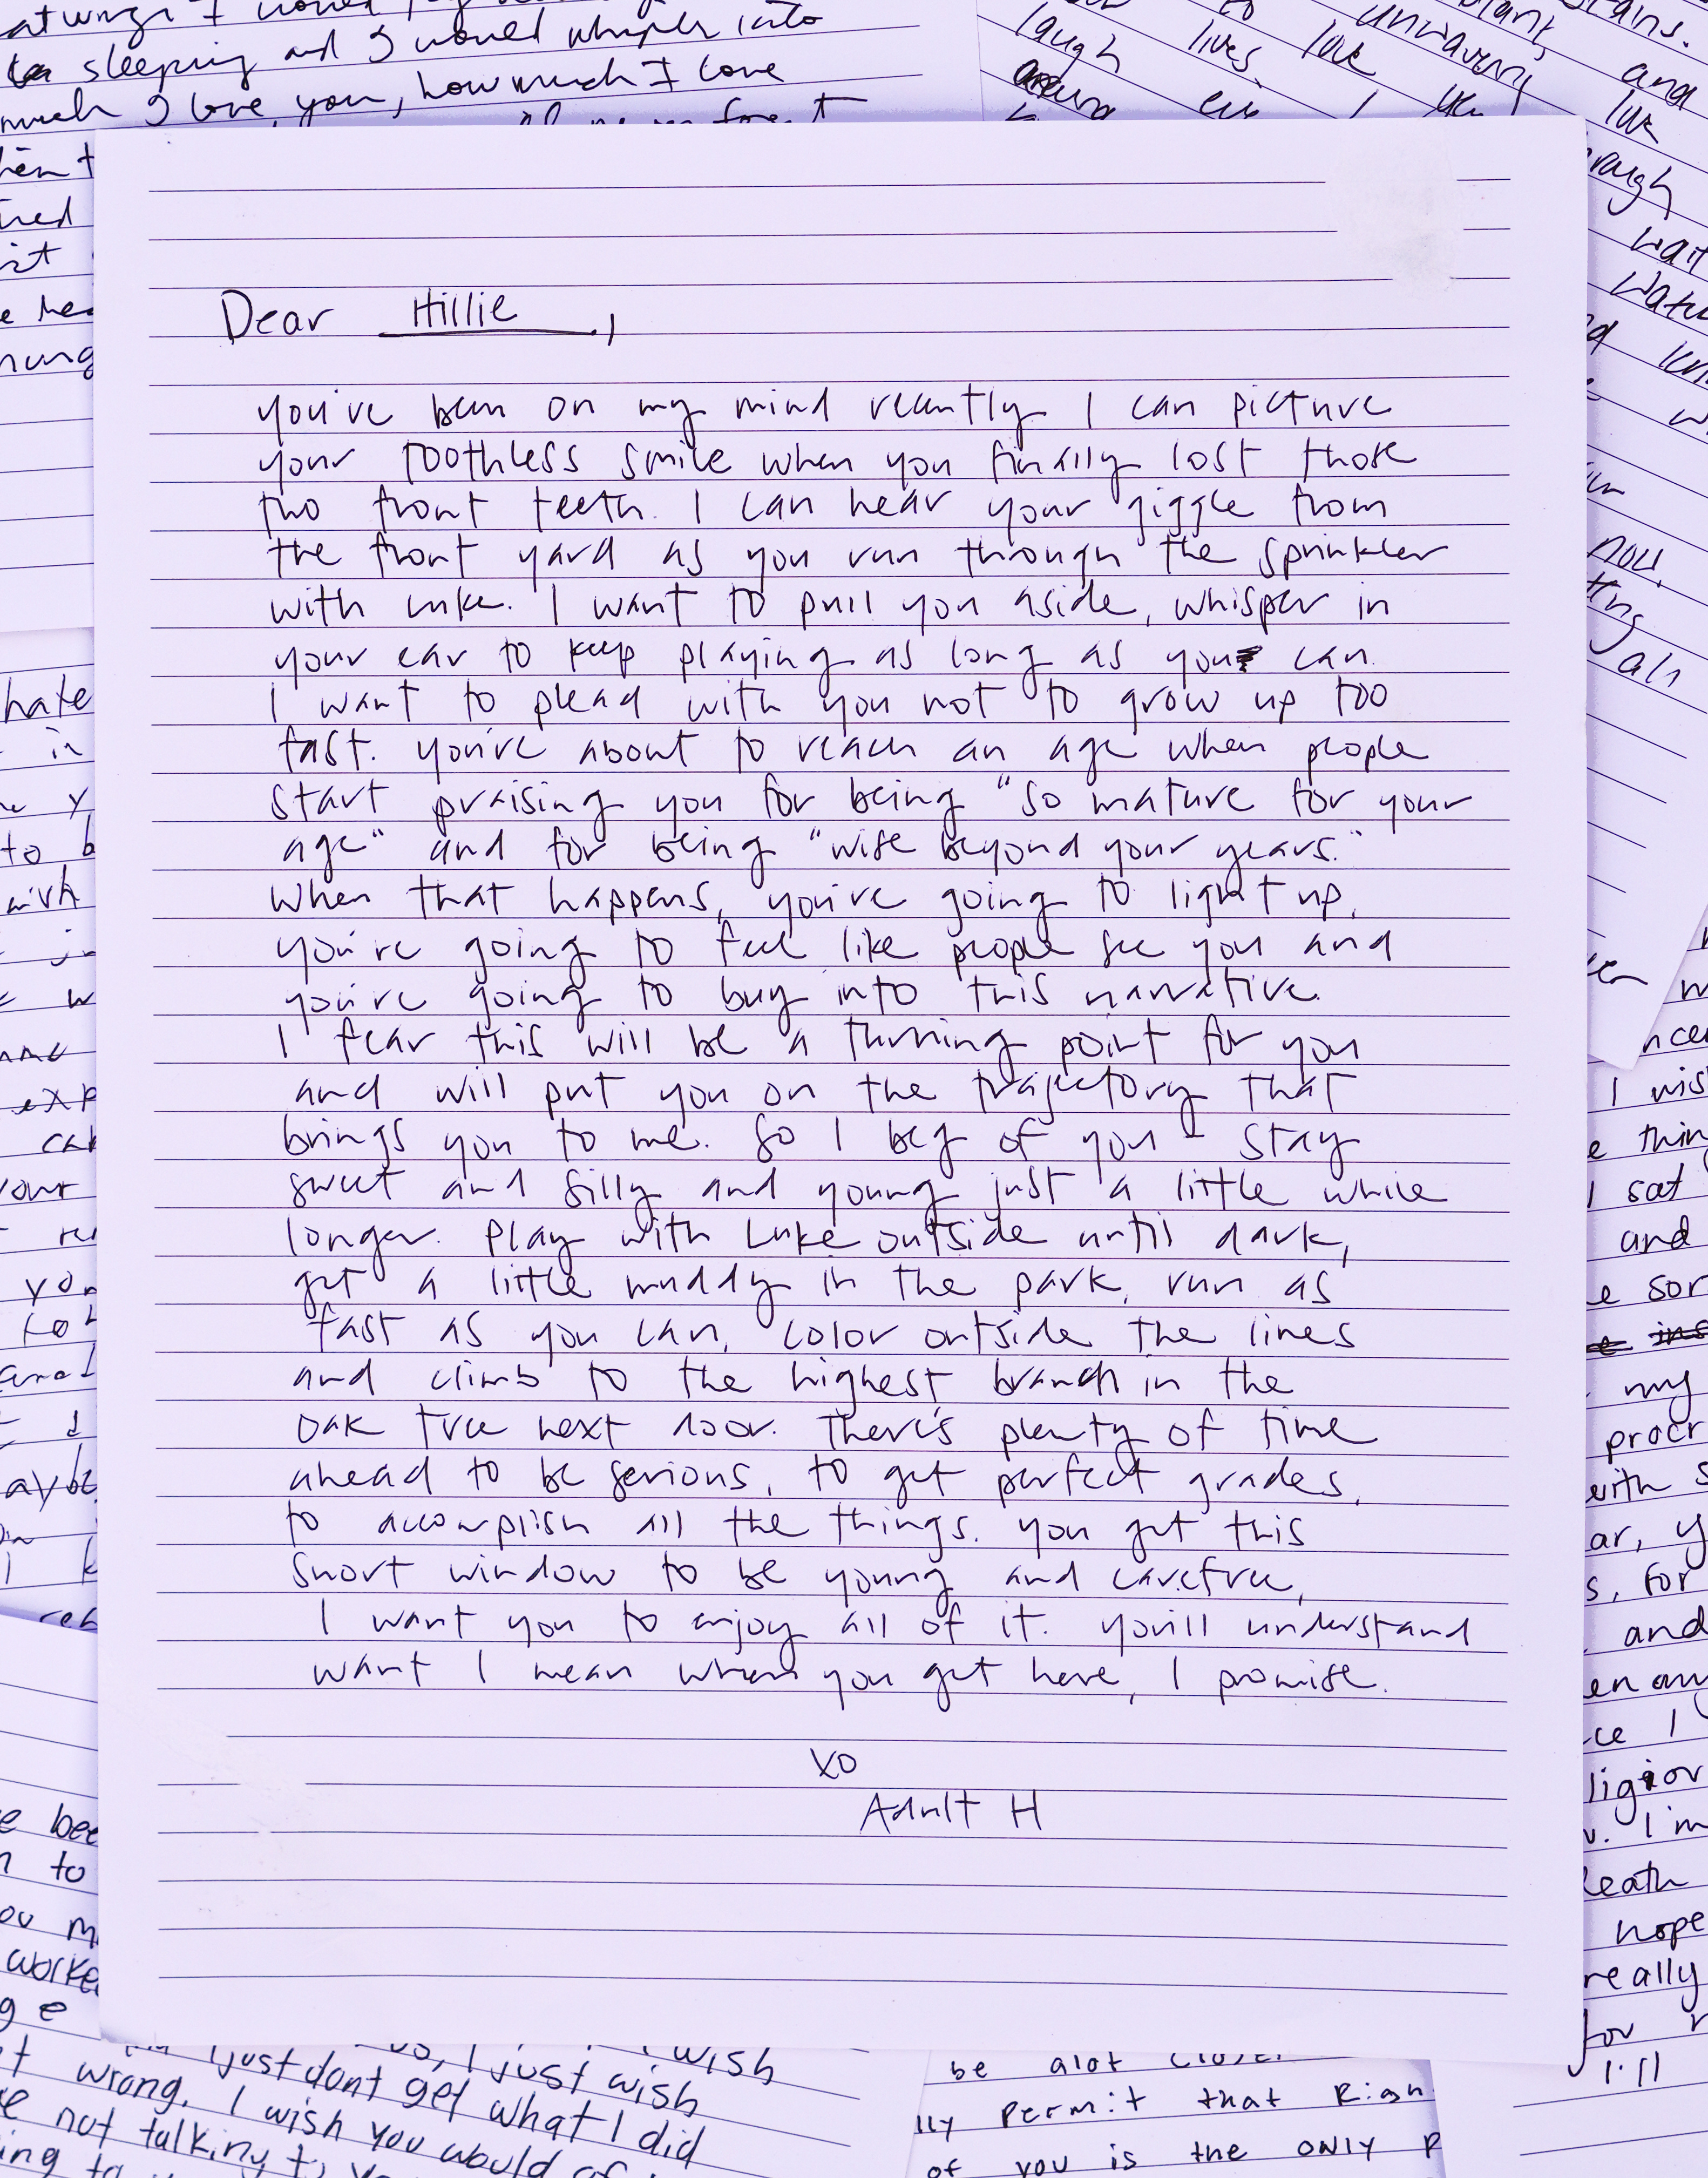 sleeping and I would whisper into
much I love you, how much I love
laugh lives. love unwavering and
Dear Hillie,
you've been on my mind recently. I can picture
your toothless smile when you finally lost those
two front teeth. I can hear your giggle from
the front yard as you run through the sprinkler
with Luke. I want to pull you aside, whisper in
your ear to keep playing as long as you can.
I want to plead with you not to grow up too
fast. you're about to reach an age when people
start praising you for being "so mature for your
age" and for being "wise beyond your years."
When that happens, you're going to light up,
you're going to feel like people see you and
you're going to buy into this narrative.
I fear this will be a turning point for you
and will put you on the trajectory that
brings you to me. So I beg of you - stay
sweet and silly and young just a little while
longer. Play with Luke outside until dark,
get a little muddy in the park, run as
fast as you can, color outside the lines
and climb to the highest branch in the
oak tree next door. There's plenty of time
ahead to be serious, to get perfect grades,
to accomplish all the things. you get this
short window to be young and carefree,
I want you to enjoy all of it. you'll understand
want I mean when you get here, I promise.
XO
Adult H
hate
in
to b
worke
wish
I just dont get what I did
just wish
wrong. I wish you would
not talking to
be alot closer
lly permit that Righ
of you is the ONLY P
I wis
thin
I sat
and
my
procr
with s
for
and
hope
really
for